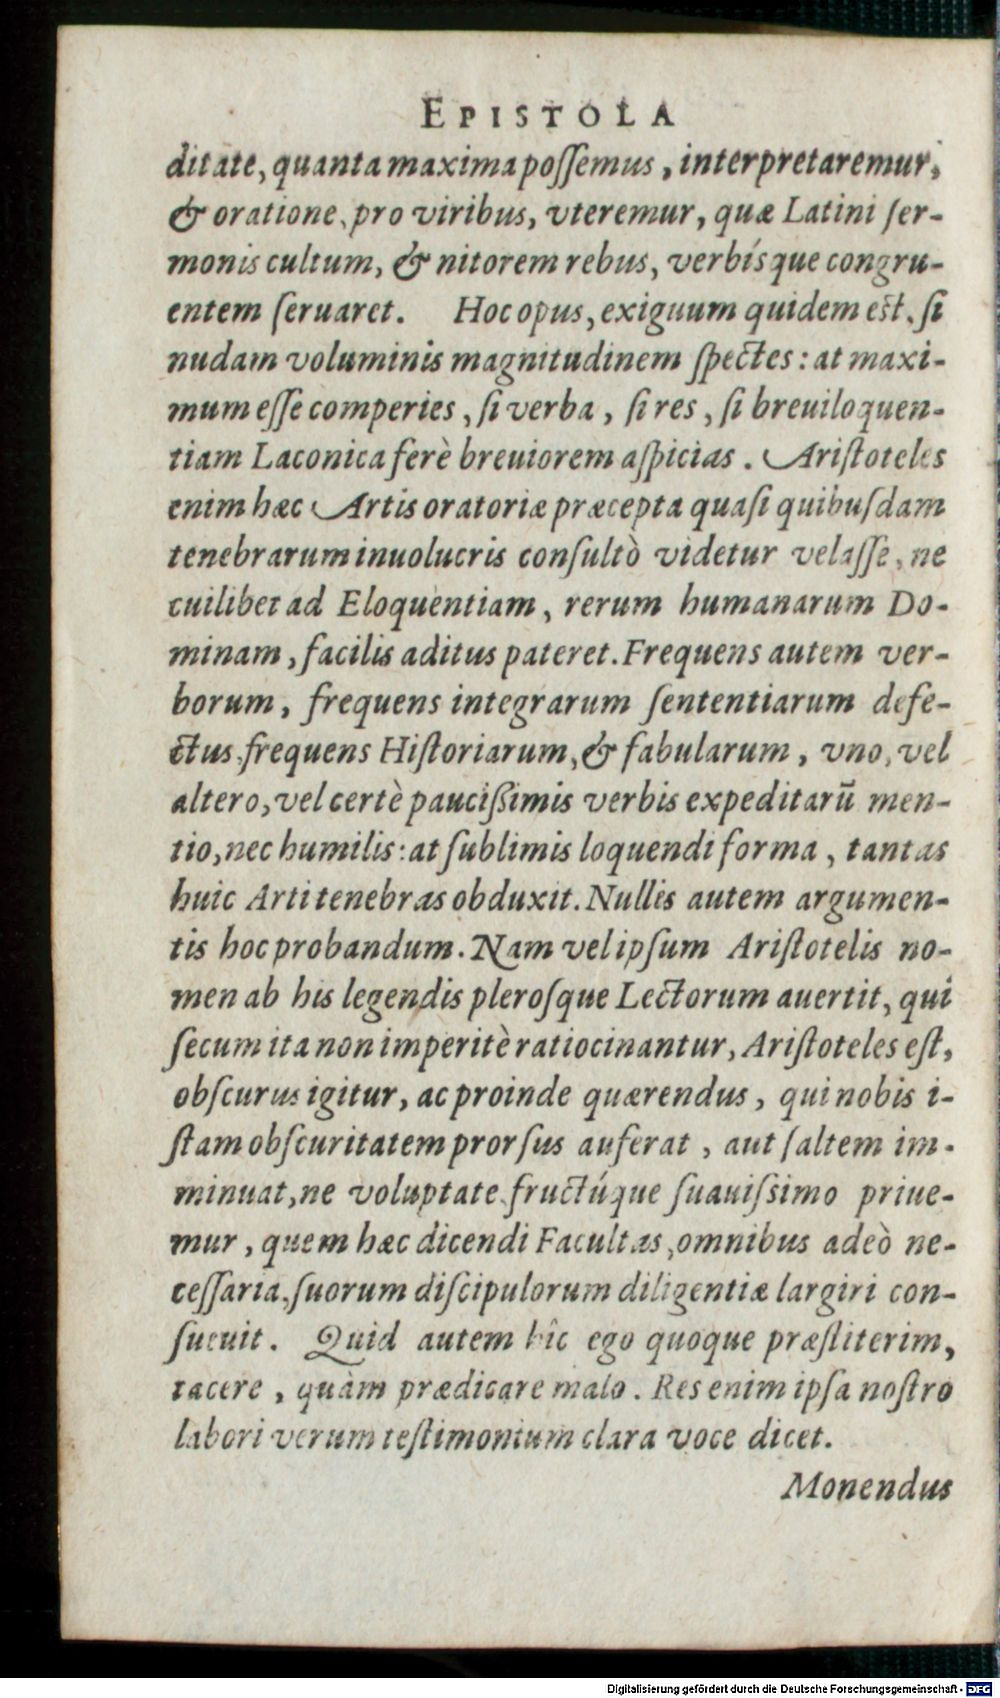 EPISTOLA
ditate, quanta maxima poſſemus, interpretaremur,
& oratione, pro viribus, vteremur, quæ Latini ſer-
monis cultum, & nitorem rebus, verbísque congru-
entem ſeruaret. Hoc opus, exiguum quidem est, ſi
nudam voluminis magnitudinem ſpectes: at maxi-
mum eſſe comperies, ſi verba, ſi res, ſi breuiloquen-
tiam Laconica ferè breuiorem aſpicias. Ariſtoteles
enim hæc Artis oratoriæ præcepta quaſi quibuſdam
tenebrarum inuolucris conſultò videtur velaſſe, ne
cuilibet ad Eloquentiam, rerum humanarum Do-
minam, facilis aditus pateret. Frequens autem ver-
borum, frequens integrarum ſententiarum defe-
ctus, frequens Hiſtoriarum, & fabularum, vno, vel
altero, vel certè pauciſsimis verbis expeditarū men-
tio, nec humilis: at ſublimis loquendi forma, tantas
huic Arti tenebras obduxit. Nullis autem argumen-
tis hoc probandum. Nam vel ipſum Ariſtotelis no-
men ab his legendis pleroſque Lectorum auertit, qui
ſecum ita non imperitè ratiocinantur, Ariſtoteles eſt,
obſcurus igitur, ac proinde quærendus, qui nobis i-
ſtam obſcuritatem prorſus auferat, aut ſaltem im-
minuat, ne voluptate, fructúque ſuauiſsimo priue-
mur, quem hæc dicendi Facultas, omnibus adeò ne-
ceſſaria, ſuorum diſcipulorum diligentiæ largiri con-
ſueuit. Quid autem hîc ego quoque præſtiterim,
tacere, quàm prædicare malo. Res enim ipſa noſtro
labori verum teſtimonium clara voce dicet.
Monendus
Digitalisierung gefördert durch die Deutsche Forschungsgemeinschaft - DFG